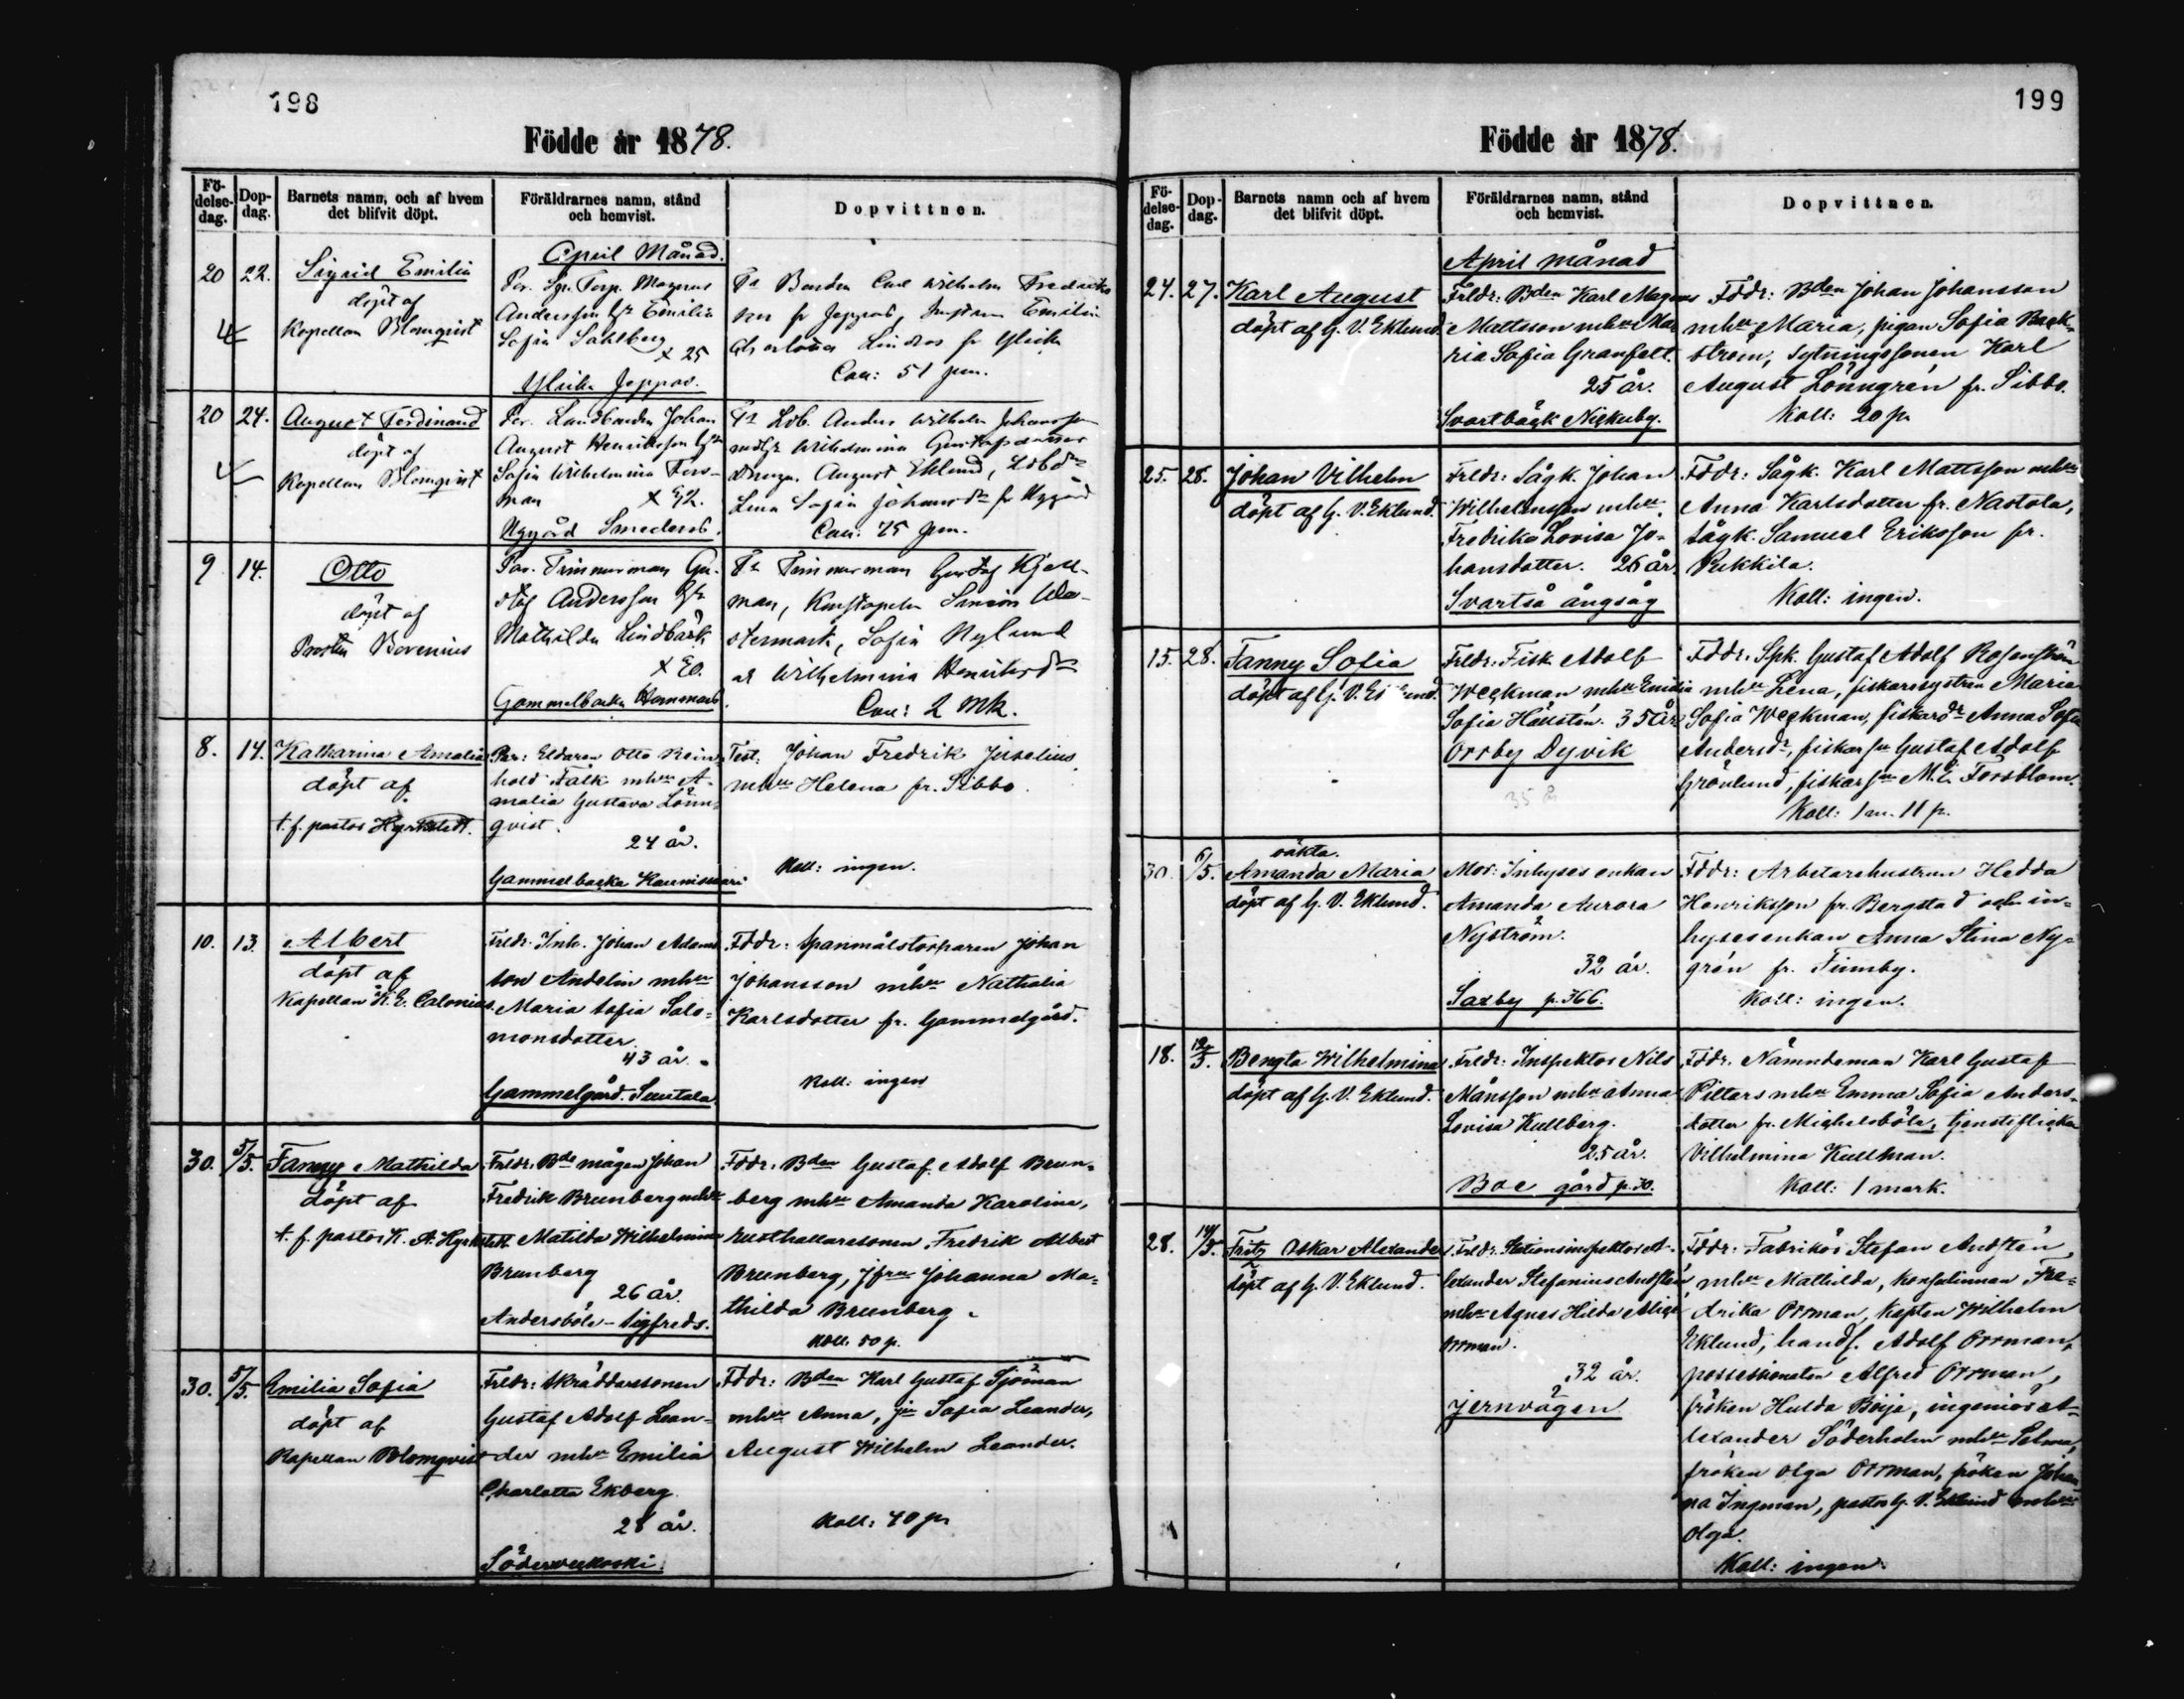 198
Födde år 1878.
Fö-
delse-
dag.
Dop-
dag.
Barnets namn, och af hvem
det blifvit döpt.
Föräldrarnes namn, stånd
och hemvist.
Dopvittnen.
April Månad.
20 22. Sigrid Emilia
döpt af
Kapellan Blomqvist
Par. Sp. Torp. Magnus
Andersson h. Emilia
Sofia Sahlberg
x 25
Ylicke Jeppas.
Tt Bonden Carl Wilhelm
fr Jeppas, Emilia
fr Ylicke
Coll: 51 pen.
20 24. August Ferdinand
döpt af
Kapellan Blomqvist
Par. Landbonden Johan
August Henriksson
Sofia Wilhelmina Fors-
man x 42.
Nygård Smedars.
Tt Ldb. Anders Wilhelm Johansson
Wilhelmina Gustafsdotter
drengen August Eklund,
Lena Sofia Johansdr fr Nygård
Coll: 75 pen.
9 14. Otto
döpt af
Prosten Borenius
Par. Timmerman Gu-
staf Andersson
Mathilda Lindbäck
Gammelbacka Hommans.
Tt Timmerman Gustaf Kjell-
man, Konstapeln Simeon We-
stermark, Sofia Nylund
o Wilhelmina Henriksdr
Coll: 2 Mk.
8. 14. Katharina Amalia
döpt af
t. f. pastor Hyrkstedt.
Par: Eldaren Otto Rein-
hold Falk mhu A-
malia Gustava Lönn-
qvist.
24 år.
Gammelbacka
Test: Johan Fredrik Juselius
mhu Helena fr. Sibbo
Koll: ingen.
10. 13. Albert
döpt af
Kapellan K. E. Calonius.
Frldr. Inh. Johan Adams
son Andelin mhu
Maria Sofia Salo-
monsdotter.
43 år.
Gammelgård. Suutala
Fddr: Spanmålstorparen Johan
Johansson mhu Nathalia
Karlsdotter fr. Gammelgård.
Koll: ingen
30. 5/5. Fanny Mathilda
döpt af
t. f. pastor K. A. Hyrkstedt.
Frldr. Bde mågen Johan
Fredrik Brunberg mhu
Matilda Wilhelmina
Brunberg
26 år.
Andersböle-Sigfreds.
Fddr: Bden Gustaf Adolf Brun-
berg mhu Amanda Karolina,
rusthallaresonen Fredrik Albert
Brunberg, jfru Johanna Ma-
thilda Brunberg.
Koll. 50 p.
30. 5/5. Emilia Sofia
döpt af
Kapellan Blomqvist
Frldr: Skräddaresonen
Gustaf Adolf Lean-
der mhu Emilia
Charlotta Ekberg
28 år.
Söderveckoski.
Fddr: Bden Karl Gustaf Sjöman
mhu Anna, ju Sofia Leander,
August Wilhelm Leander.
Koll: 40 pi
199
Födde år 1878.
Fö-
delse-
dag.
Dop-
dag.
Barnets namn och af hvem
det blifvit döpt.
Föräldrarnes namn, stånd
och hemvist.
Dopvittnen.
April månad
24. 27. Karl August
döpt af G. V. Eklund.
Frldr: Bden Karl Magnus
Mattsson mhu Ma-
ria Sofia Granfelt.
25 år.
Svartbäck Nickuby.
Fddr: Bden Johan Johansson
mhu Maria, pigan Sofia Back-
ström, Sytningssonen Karl
August Lönngren fr. Sibbo.
Koll: 20 p.
25. 28. Johan Vilhelm
döpt af G. V. Eklund.
Frldr: Sågk. Johan
Wilhelmsson mhu
Fredrika Lovisa Jo-
hansdotter. 26 år.
Svartså ångsåg
Fddr: Sågk. Karl Mattsson mhu
Anna Karlsdotter fr. Nastola,
Sågk. Samuel Eriksson fr.
Pukkila.
Koll: ingen.
15. 28. Fanny Sofia
döpt af G. V. Eklund.
Frldr: Fisk Adolf
Weckman mhu Emilia
Sofia Hällsten. 35 år
Orrby Dyvik
35 å
Fddr. Spk. Gustaf Adolf Rosenström
mhu Lena, fiskaresystern Maria
Sofia Weckman, fiskardr Anna Sofia
Andersdr, fiskarsn Gustaf Adolf
Grönlund, fiskarsn M. E. Forsblom.
Koll: 1 m. 11 p.
30. 6/5. oäkta.
Amanda Maria
döpt af G. V. Eklund.
Mor: Inhyses enkan
Amanda Aurora
Nyström.
32 år.
Saxby p. 366.
Fddr: Arbetarehustrun Hedda
Henriksson fr. Bergstad och in-
hysesenkan Anna Stina Ny-
grén fr. Finnby.
Koll: ingen.
18. 12/5. Bengta Wilhelmina
döpt af G. V. Eklund.
Frldr: Inspektor Nils
Månsson mhu Anna
Lovisa Kullberg.
25 år.
Boe gård p. 30.
Fddr. Nämndeman Karl Gustaf
Pitters mhu Emma Sofia Anders-
dotter fr. Michelsböle, tjensteflickan
Vilhelmina Kullman.
Koll: 1 mark.
28. 14/5. Fritz Oskar Alexander
döpt af G. V. Eklund.
Frldr. Stationsinspektor A-
lexander Stefanius Andsten
mhu Agnes Hilda
Orrman.
32 år.
jernvägen
Fddr: Fabrikör Stefan Andsten
mhu Mathilda, konsulinnan Fre-
drika Orrman, kapten Wilhelm
Eklund, handl. Adolf Orrman,
possessionaten Alfred Orrman,
fröken Hulda Boije, ingeniör A-
lexander Söderholm mhu Selma,
fröken Olga Orrman, fröken Johan
na Ingman, pastor G. V. Eklund mhu
Olga.
Koll: ingen.